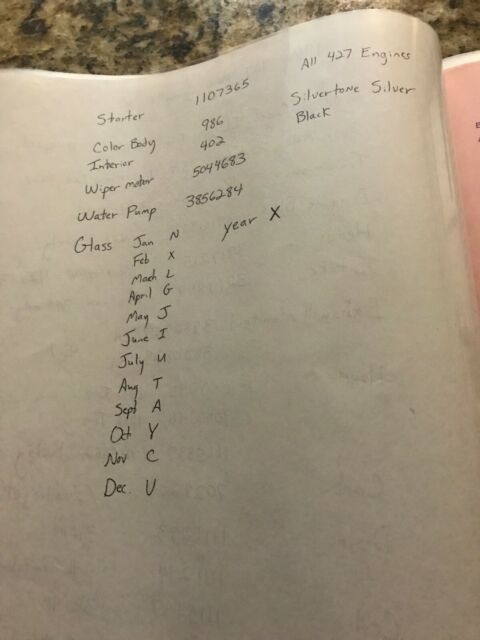 Starter 1107365 All 427 Engines
Color Body 986 Silvertone Silver
Interior 402 Black
Wiper motor 5044683
Water Pump 3856284
Glass Jan N year X
Feb X
Mach L
April G
May J
June I
July U
Aug T
Sept A
Oct Y
Nov C
Dec. U